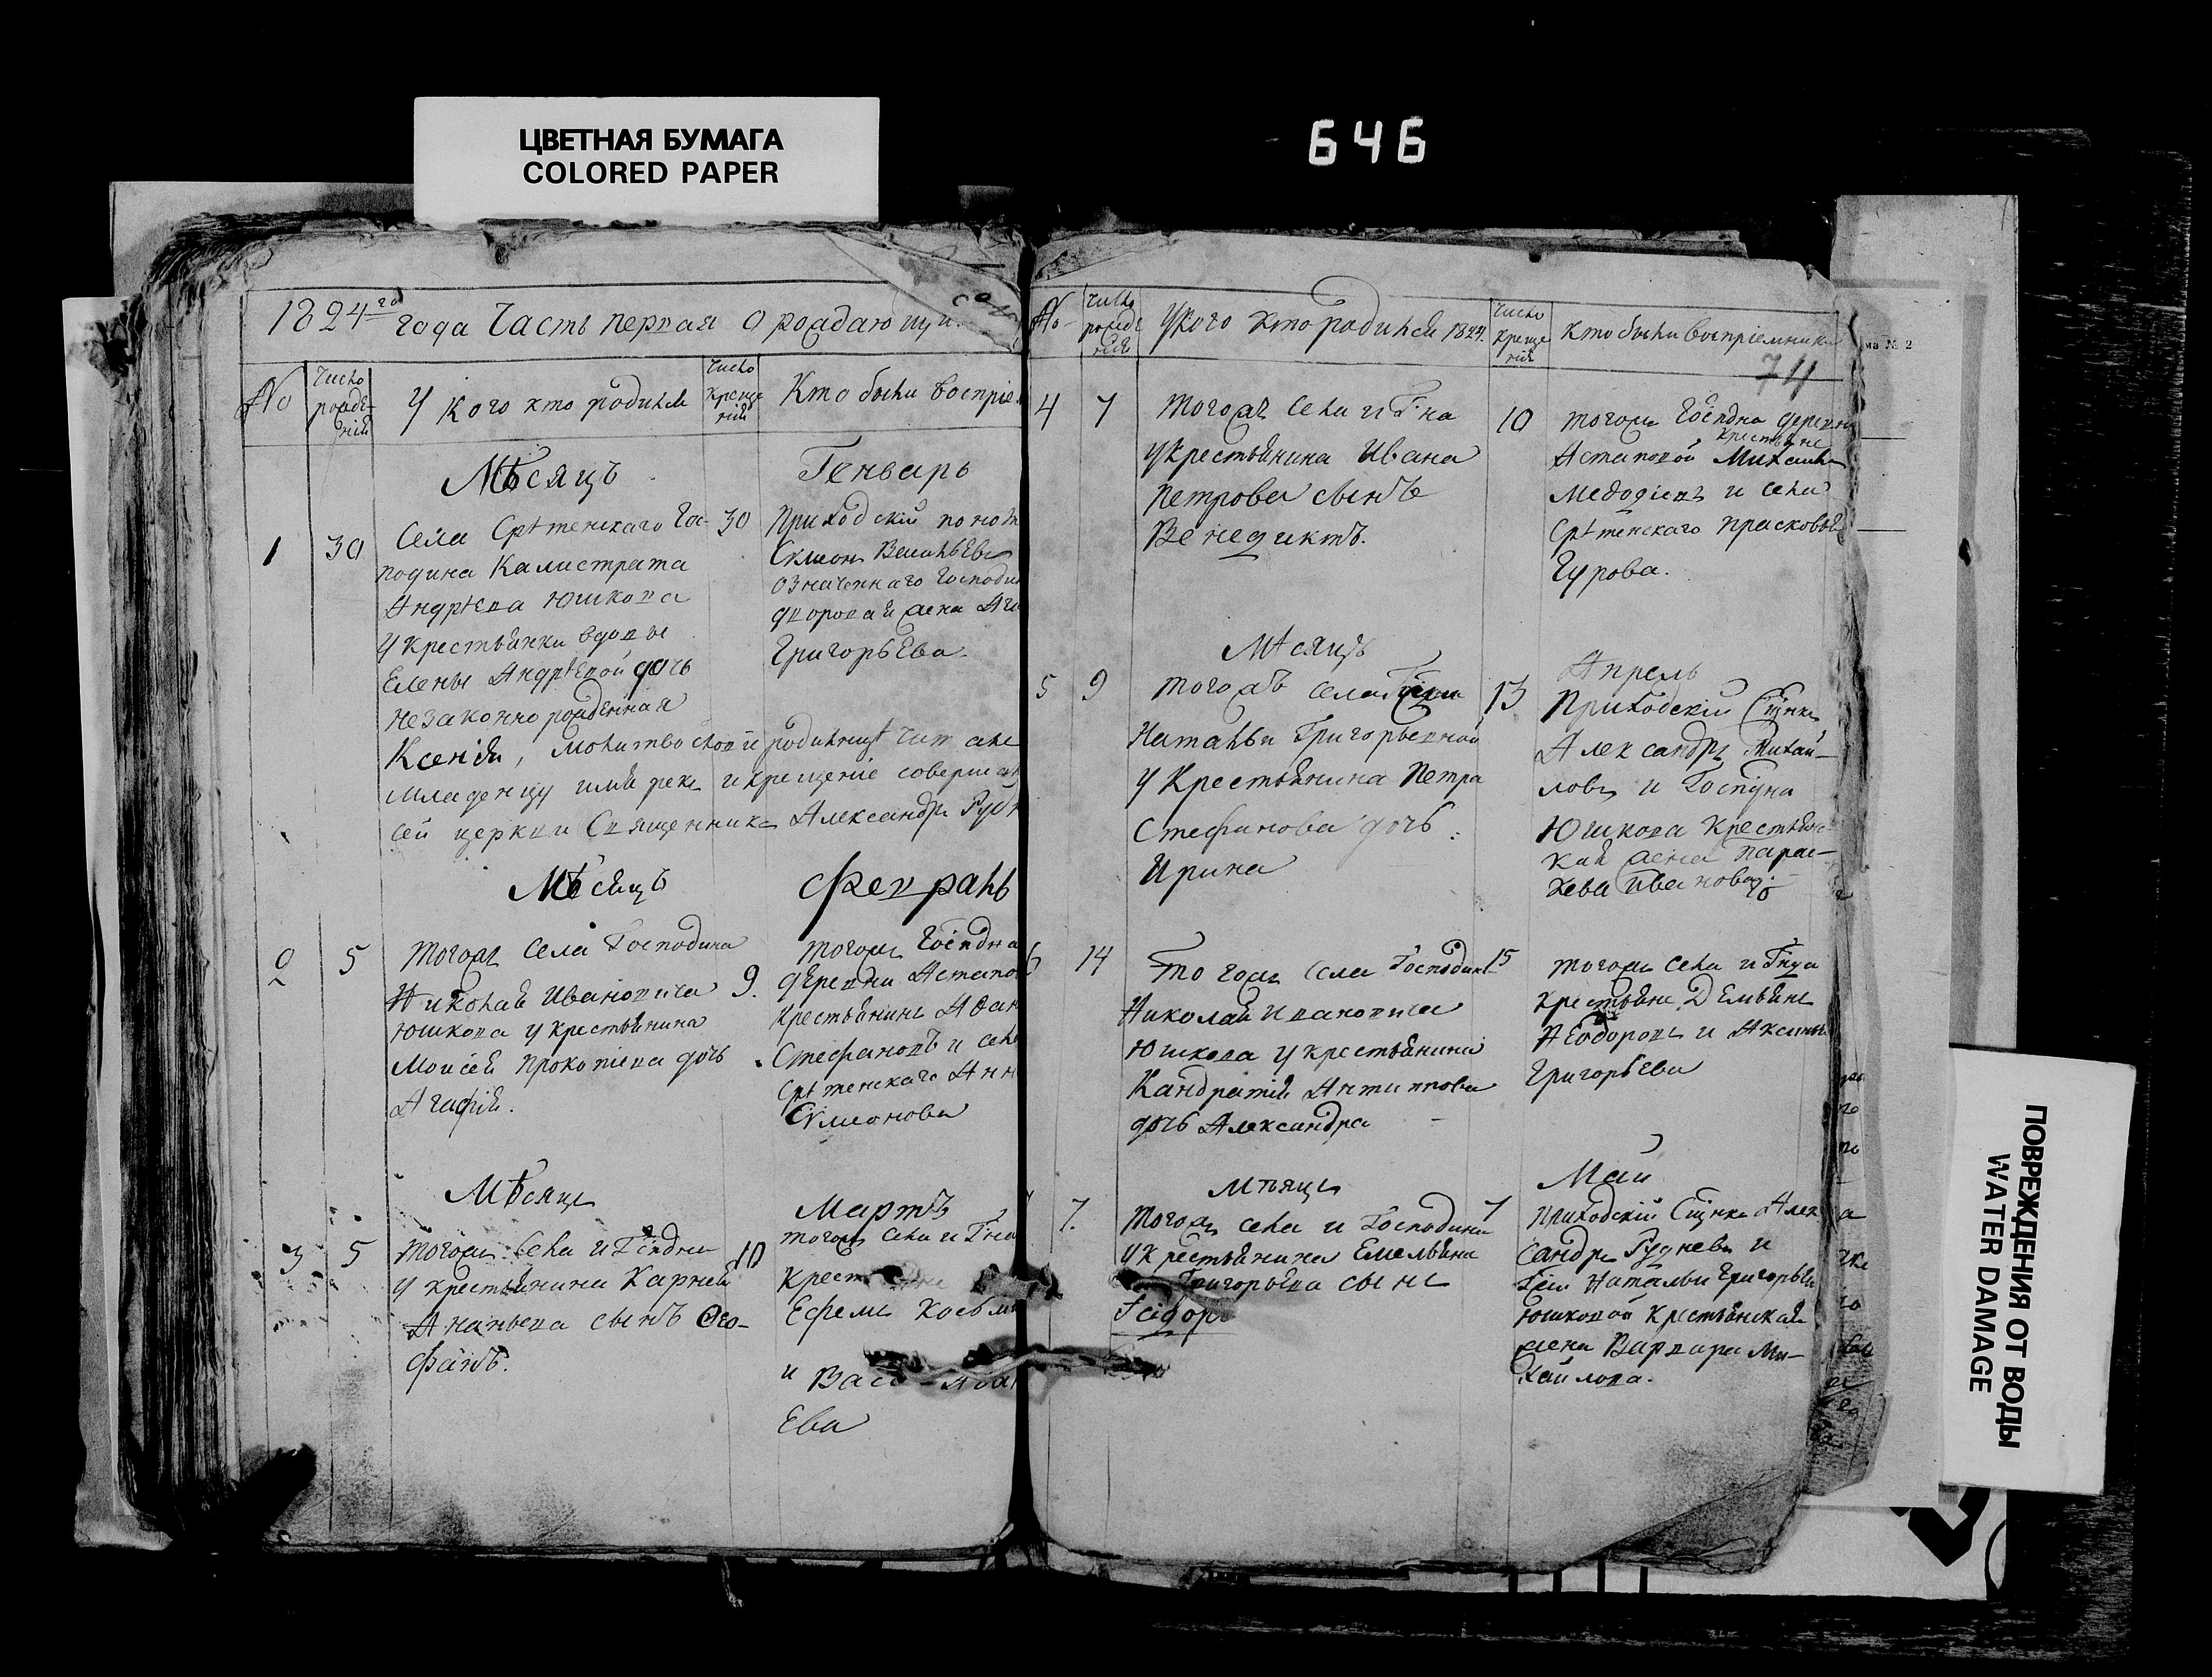 ЦВЕТНАЯ БУМАГА
COLORED PAPER
646
1824го года Часть первая о раждающи
№
число рожденiя
У кого кто родился
число крещенiя
Кто были воспрiем
Мѣсяцъ
Генварь
1
30
Села Срѣтенскаго Гос-
подина Калистрата
Андрѣева Юшкова
у крестьянки вдовы
Елены Андрѣевой дочь
незаконно рожденная
Ксенiя, молитвословiе родильницѣ читале
младенцу имя реке и крещенiе совершале
сей церкви Священнике Александръ Рудн
30
Приходскiй поном
Сѵмеонъ Васильевъ
означеннаго Господин
дворовая жена Ага
Григорьева
Мѣсяцъ
Февраль
2
5
тогожъ села Господина
Николая Ивановича
Юшкова у крестьянина
Моисея Прокопiева дочь
Агафiя.
9.
тогожъ Госпдна
деревни Астапов
крестьянинъ Аѳан
Стефановъ и села
Срѣтенскаго Анн
Сѵмеонова
Мѣсяцъ
Мартъ
3
5
тогожъ села и Гспдна
у крестьянина Карнея
Ананьева сынъ Ѳео-
фанъ.
10
тогожъ села и Гна
Ефремъ Козьми
и
Ева
№
число рожденiя
У кого кто родился 1824.
число крещенiя
кто были воспрiемники
74
4
7
тогожъ села и Гна
у крестьянина Ивана
Петрова сынъ
Венедиктъ.
10
тогожъ Госпдна деревни
крестьяне
Астаповой Михаилъ
Меѳодiевъ и села
Срѣтенскаго Прасковья
Гурова.
Мѣсяцъ
Апрель
5
9
тогожъ села Гспжи
Натальи Григорьевной
у крестьянина Петра
Стефанова дочь
Ирина
13
Приходскiй Сщнкъ
Александръ Михай-
ловъ и Госпдна
Юшкова крестьянс-
кая жена Парас-
кева Иванова
6
14
Тогожъ села Господина
Николая Ивановича
Юшкова у крестьянина
Кандратiя Антипова
дочь Александра
15
тогожъ села и Гнда
крестьяне Демьянъ
Ѳеодоровъ и Аксинья
Григорьева
Мѣяцъ
Май
7.
тогожъ села и Господина
у крестьянина Емельяна
Григорьева сынъ
Iсидоръ
7
Приходскiй Сщнкъ Алек
сандръ Рудневъ и
Гжи Натальи Григорьев
Юшковой крестьянская
жена Варвара Ми-
хайлова.
ПОВРЕЖДЕНИЯ ОТ ВОДЫ
WATER DAMAGE